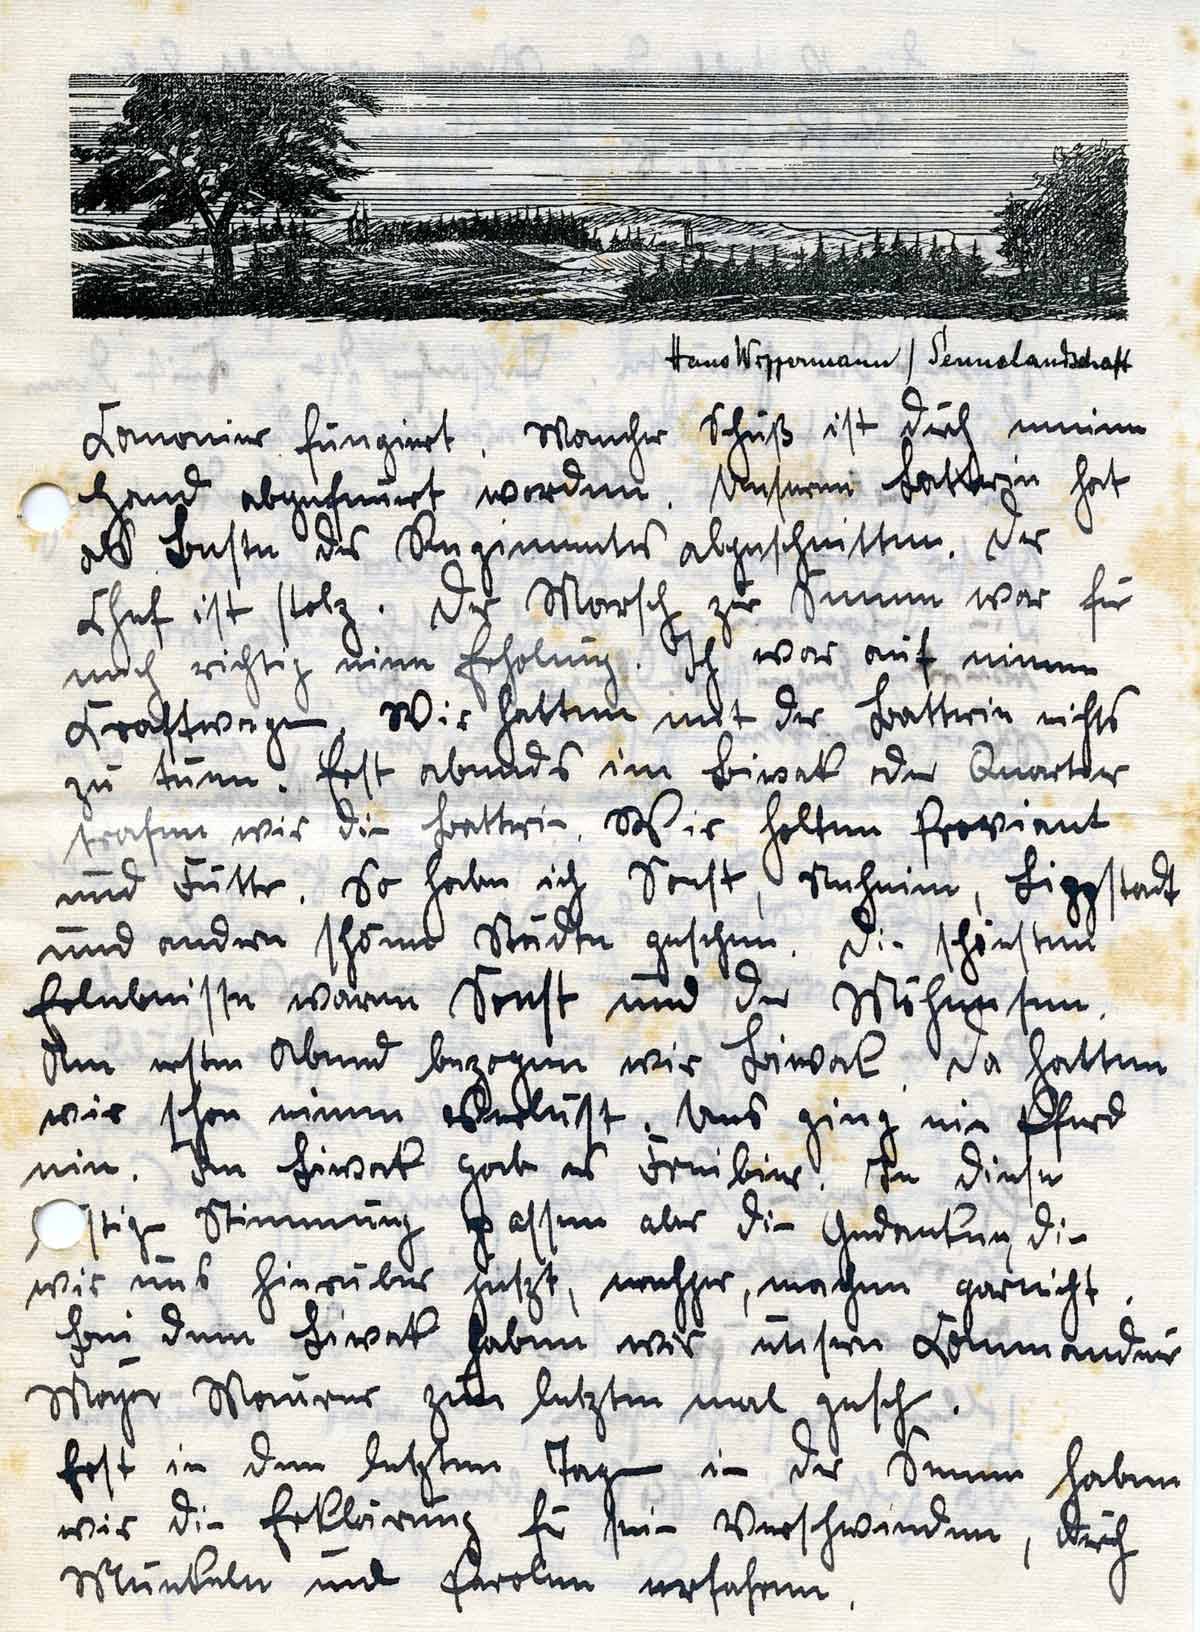 Hans Wippermann / Sennelandschaft
Canonier fungiert. Mancher Schuß ist durch meine
Hand abgefeuert worden. Unsere Batterie hat
als Beste des Regimentes abgeschnitten. Der
Chef ist stolz. Der Marsch zur Senne war für
mich richtig eine Erholung. Ich war auf einem
Kraftwagen. Wir hatten mit der Batterie nichts
zu tuen. Erst abends im Biwak oder Quartier
trafen wir die Batterie. Wir holten Proviant
und Futter. So habe ich Soest, Neheim, Lippstadt
und andere schöne Städte gesehen. Die schönsten
Erlebnisse waren Soest und der Möhnesee.
Am ersten Abend bezogen wir Biwak. Da hatten
wir schon einen Verlust. Uns ging ein Pferd
ein. Im Biwak gab es Freibier. In diese
Stimmung passen aber die Gedanken, die
wir uns hierüber jetzt, nachher, machen garnicht.
Bei dem Biwak haben wir unsern Commandeur
Major Maurer zum letzten mal geseh.
Erst in den letzten Tagen in der Senne haben
wir die Erklärung für sein Verschwinden, durch
Munkeln und Parolen erfahren.